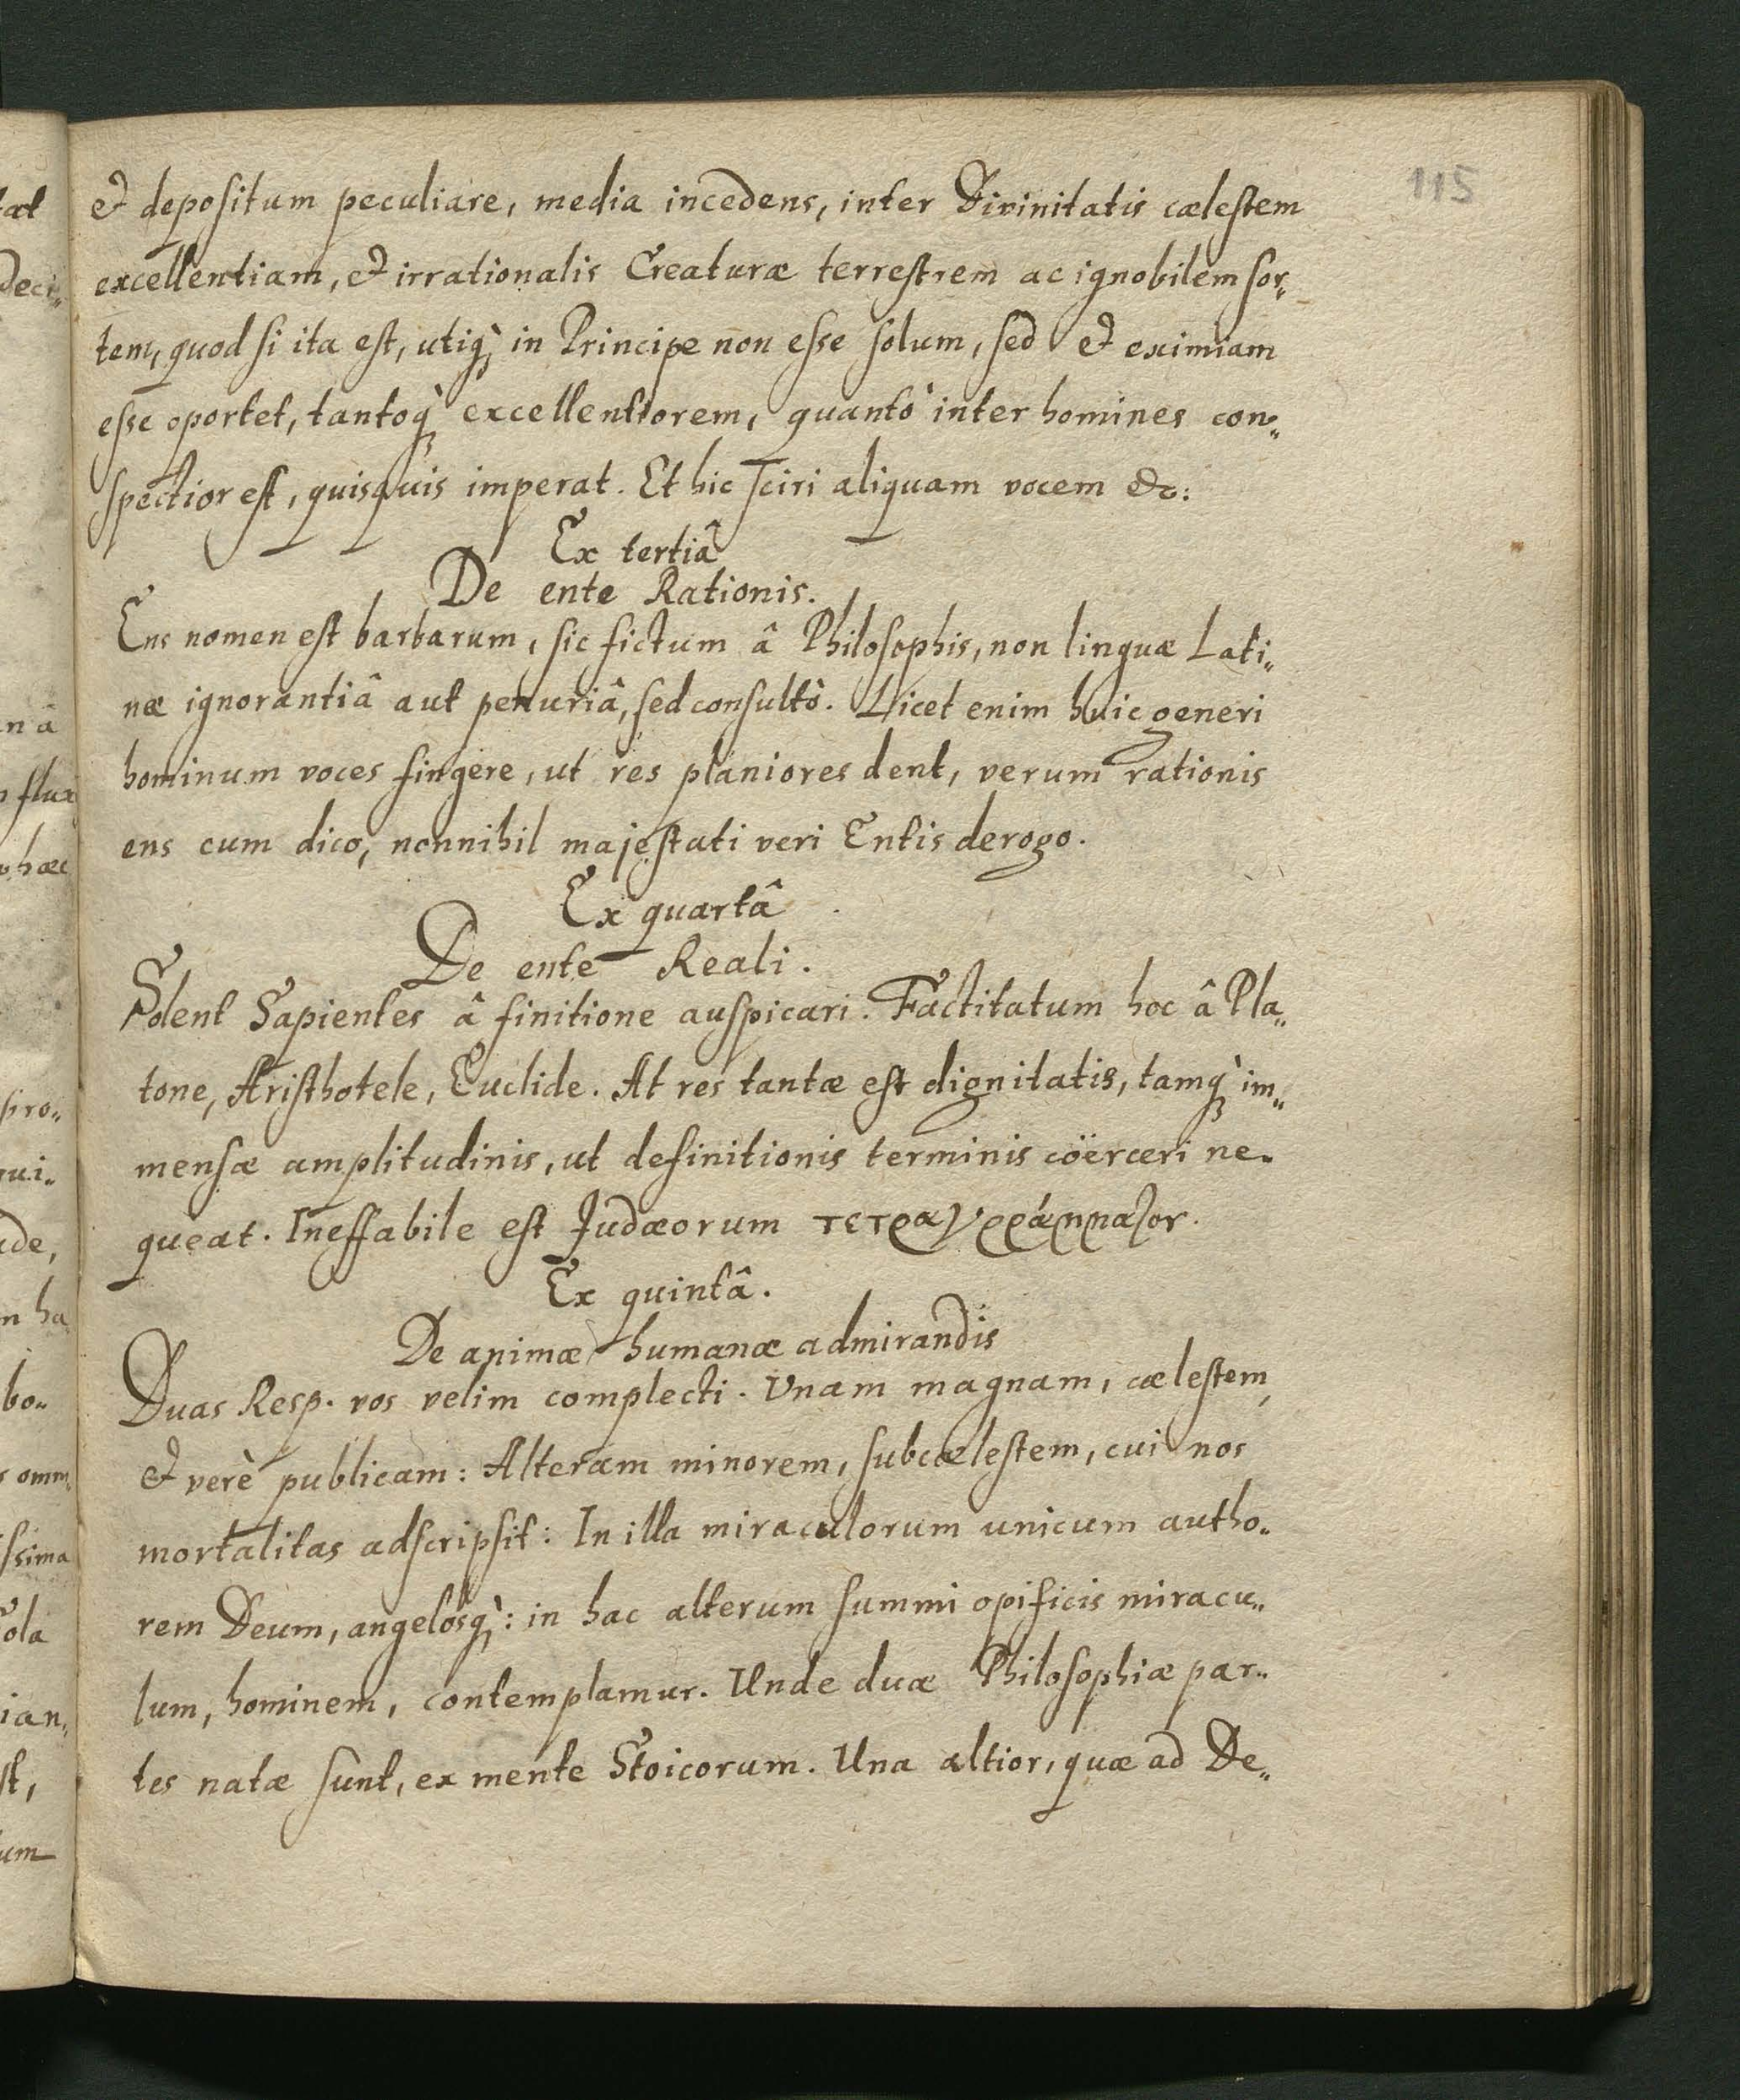 115
et depositum peculiare, media incedens, inter Divinitatis cælestem
excellentiam, et irrationalis Creaturæ terrestrem ac ignobilem sor„
tem, quod si ita est, utiq́; in Principe non esse solum, sed et eximiam
esse oportet, tantoq́; excellentiorem, quantò inter homines con„
spectior est, quisquis imperat. Et hic sciri aliquam vocem &c:
Ex tertiâ
De ente Rationis.
Ens nomen est barbarum, sic fictum â Philosophis, non linguæ Lati„
næ ignorantiâ aut penuriâ, sed consultò. Licet enim huic generi
hominum voces fingere, ut res planiores dent, verum rationis
ens cum dico, nonnihil majestati veri Entis derogo.
Ex quartâ
De ente Reali.
Solent Sapientes â finitione auspicari. Factitatum hoc â Pla„
tone, Aristhotele, Euclide. At res tantæ est dignitatis, tamq́; im„
mensæ amplitudinis, ut definitionis terminis coërceri ne„
queat. Ineffabile est Judæorum τετραγράμματον.
Ex quintâ.
De animæ humanæ admirandis
Duas Resp. vos velim complecti. Unam magnam, cælestem,
et verè publicam: Alteram minorem, subcælestem, cui nos
mortalitas adscripsit: In illa miraculorum unicum autho„
rem Deum, angelosq́;: in hac alterum summi opificis miracu„
lum, hominem, contemplamur. Unde duæ Philosophiæ par„
tes natæ sunt, ex mente Stoicorum. Una altior, quæ ad De„